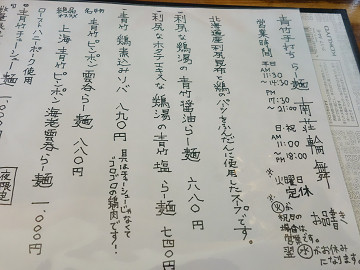 青竹手打ちらー麺 南荘輪舞
営業時間
平日
AM 11:30
14:30
PM 17:30
21:00
日 祝
AM 11:00
PM 18:00
お品書き
火曜日
定休
火が
祝日の
場合は
営業です。
翌水がお休み
になります。
北海道産利尻昆布と鶏のガラをふんだんに使用したスープです。
利尻な鶏湯の青竹醤油らー麺 六八〇円
利尻なホタテエキスな鶏湯の青竹塩らー麺 七四〇円
青竹鶏煮込みソバ 八九〇円 具はチャーシューじゃなくてゴロゴロの鶏肉です!
名物 青竹ピンポン雲呑らー麺 八八〇円
絶品オススメ 上海青竹ピンポン海老雲呑らー麺 一、〇〇〇円
ロースト
青竹チャーシュー麺
夜限定